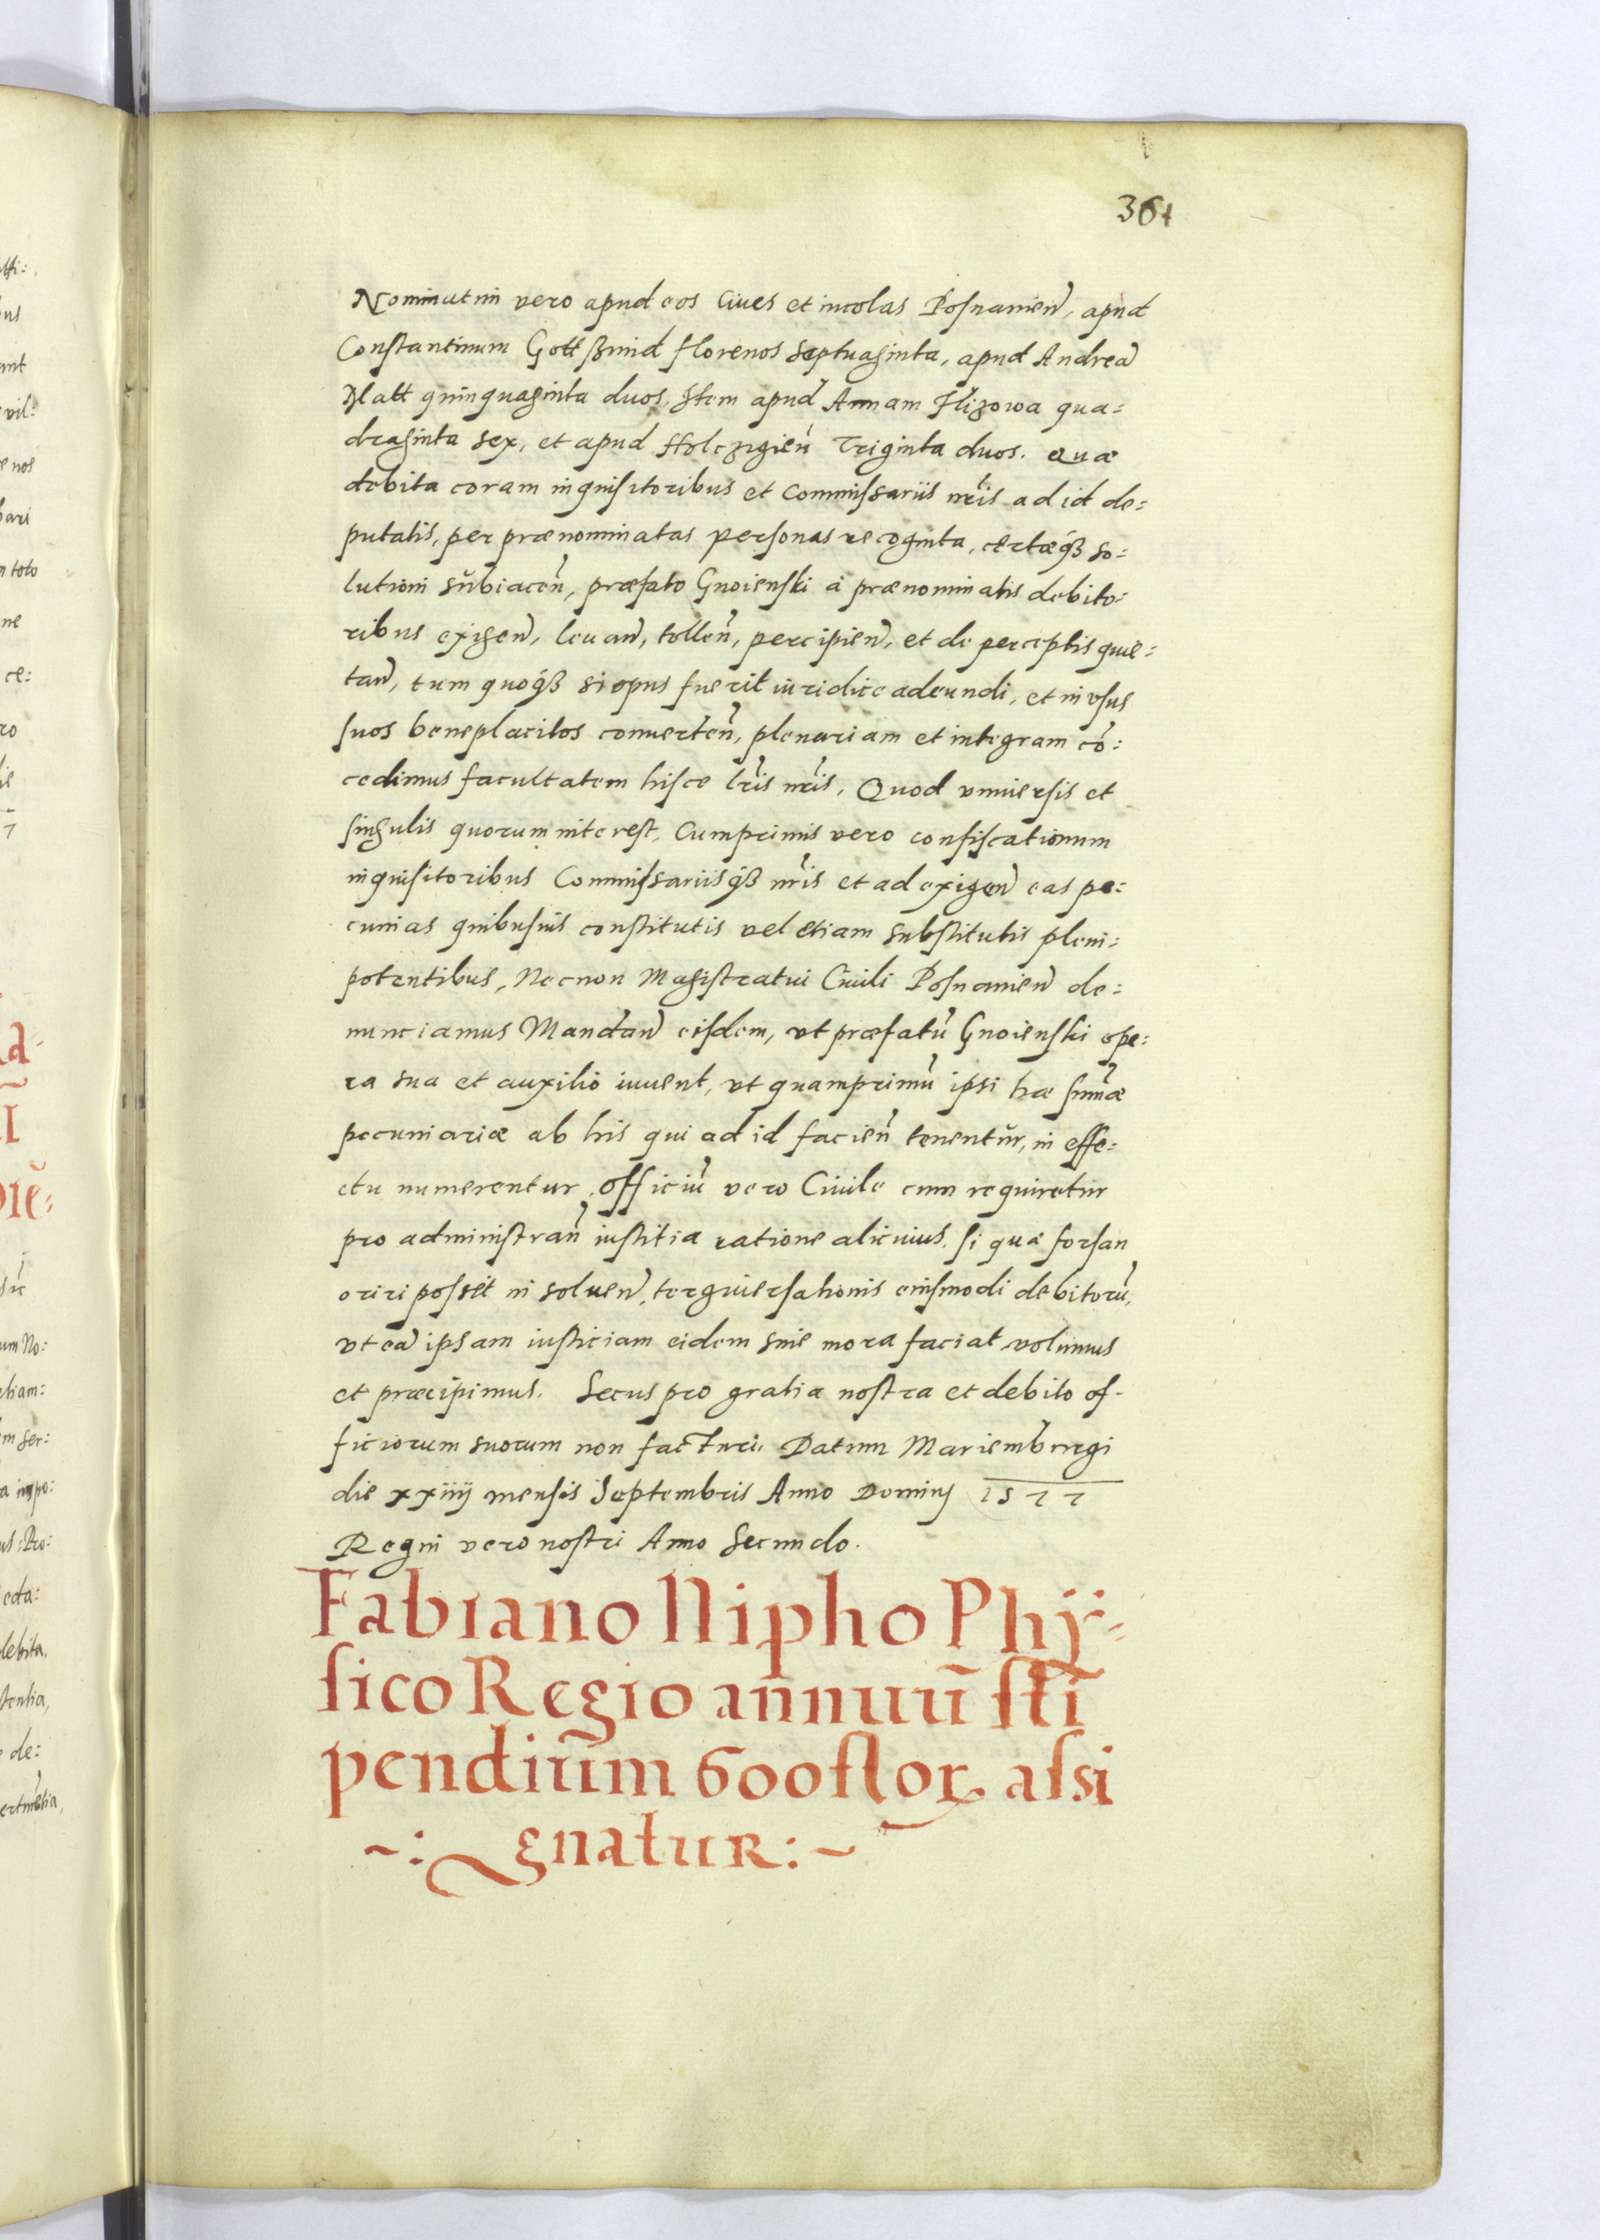 364
Nominatim vero apud eos Ciues et incolas Posnanien̄, apud
Constantinum Gottßmid florenos septuaginta, apud Andreā
Platt quinquaginta duos, Item apud Annam Flizowa qua=
draginta sex, et apud Triginta duos. Quæ
debita coram inquisitoribus et Commissariis nr̄is ad id de=
putatis, per prænominatas personas recognita, certæqȝ so=
lutioni subiacen̄, præfato Gnoienski à prænominatis debito=
ribus exigen̄, leuan̄, tollen̄, percipien̄, et de perceptis quie=
tan̄, tum quoqȝ si opus fuerit iuridice adeundi, et in vsus
suos beneplacitos conuerten̄, plenariam et integram cō=
cedimus facultatem hisce lr̄is nr̄is. Quod vniuersis et
singulis quorum interest, Cumprimis vero confiscationum
inquisitoribus Commissariisqȝ nr̄is et ad exigen̄ eas pe=
cunias quibusuis constitutis vel etiam substitutis pleni=
potentibus, Necnon Magistratui Ciuili Posnanien̄ de=
nunciamus Mandan̄ eisdem, vt præfatū Gnoienski ope=
ra sua et auxilio iuuent, vt quamprimū ipsi hæ sum̄æ
pecuniariæ ab his qui ad id facien̄ tenentur, in effe=
ctu numerentur. Officiū vero Ciuile cum requiretur
pro administran̄ iustitia ratione alicuius, si quæ forsan
oriri posset in soluen̄, tergiuersationis eiusmodi debitorū,
vt eā ipsam iusticiam eidem sine mora faciat volumus
et præcipimus. Secus pro gratia nostra et debito of-
ficiorum suorum non facturi. Datum Mariemburgi
die xxiiij mensis Septembris Anno Dominj 1577
Regni vero nostri Anno Secundo.
Fabiano Nipho Phÿ=
sico Regio annuū sti
pendium 600 floꝝ assi
~: gnatur :~